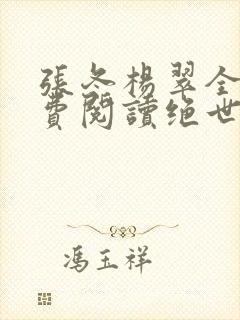 張冬楊翠全
費閱讀绝世
馮玉祥